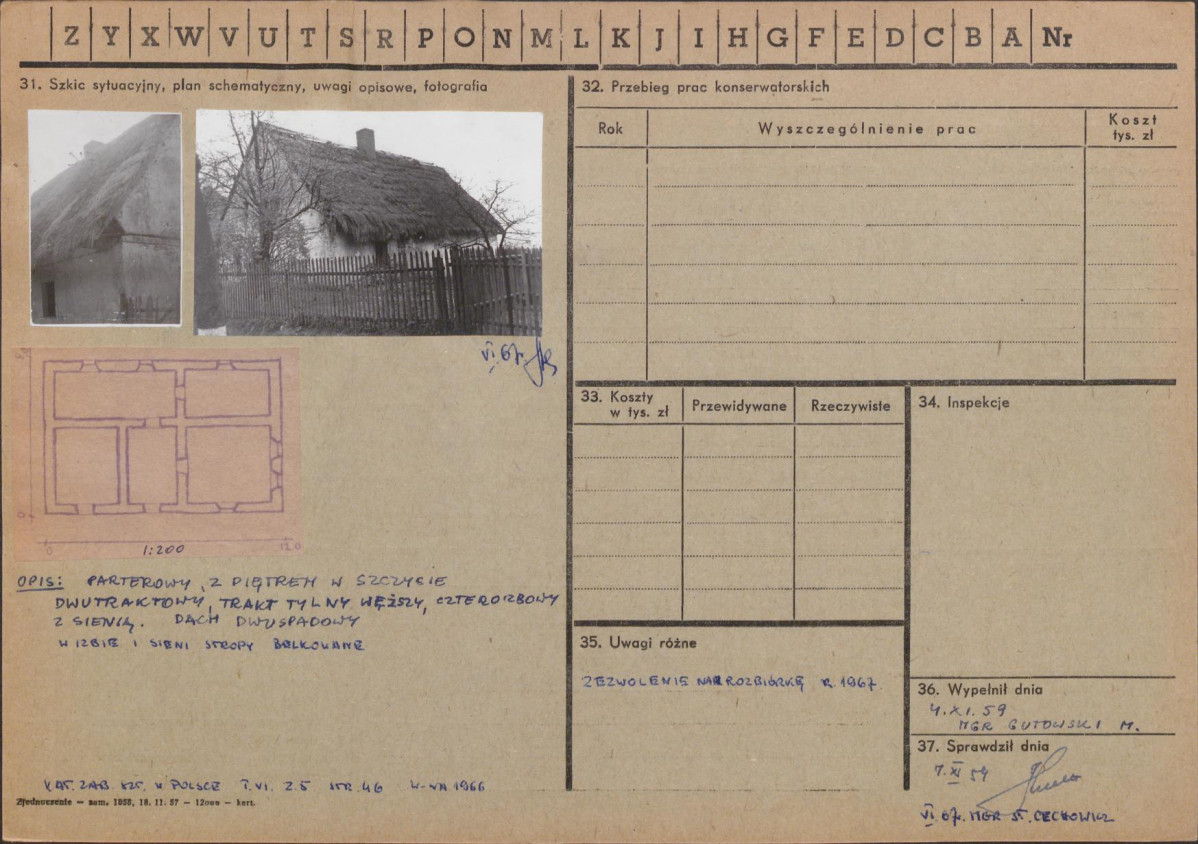 Z Y X W V U T S R P O N M L K J I H G F E D C B A Nr
31. Szkic sytuacyjny, plan schematyczny, uwagi opisowe, fotografia
VI. 67.
0 1:200 120
OPIS: PARTEROWY, Z PIĘTREM W SZCZYCIE
DWUTRAKTOWY, TRAKT TYLNY WĘŻSZY, CZTEROIZBOWY
Z SIENIĄ. DACH DWUSPADOWY
W IZBIE I SIENI STROPY BELKOWANE
KAT. ZAB. SZT. W POLSCE T. VI. Z. 5 STR. 46 W-WA 1966
Zjednoczenie — zam. 1958, 18. 11. 57 — 12000 — kart.
32. Przebieg prac konserwatorskich
Rok Wyszczególnienie prac Koszt
tys. zł
33. Koszty
w tys. zł Przewidywane Rzeczywiste
34. Inspekcje
35. Uwagi różne
ZEZWOLENIE NA ROZBIÓRKĘ R. 1967.
36. Wypełnił dnia
4. XI. 59
MGR GUTOWSKI M.
37. Sprawdził dnia
7. XI 59
VI 67. MGR ST. CECHOWICZ